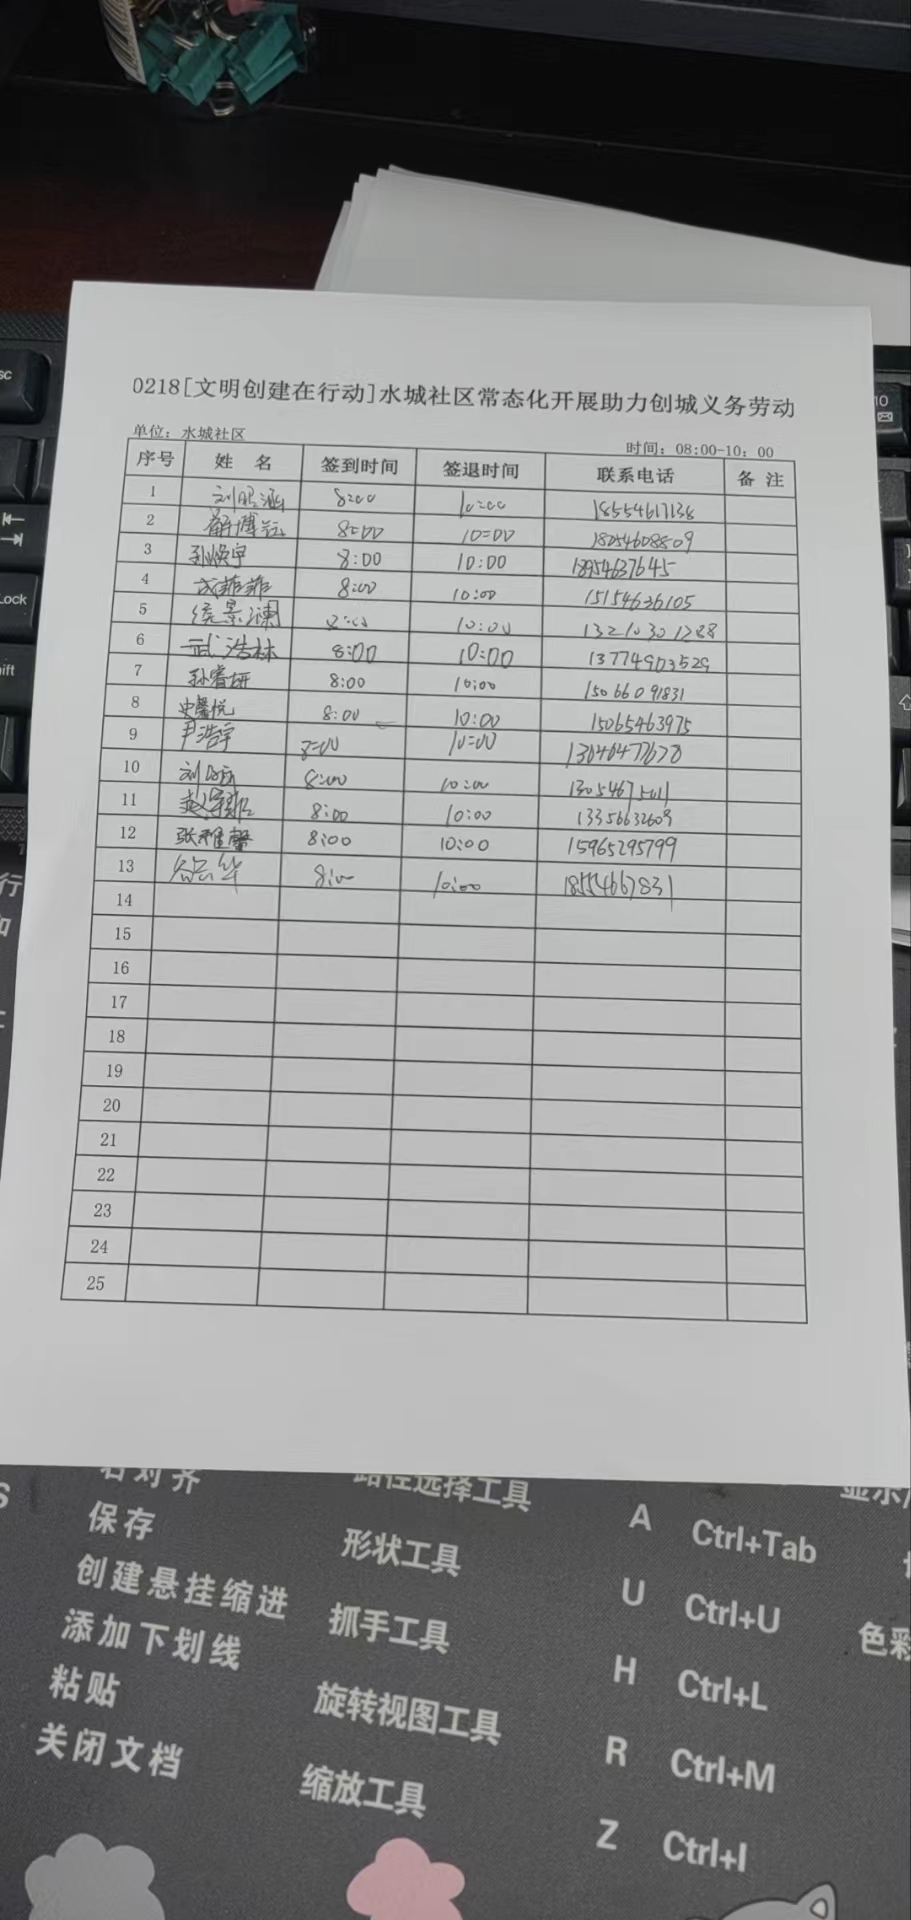 0218[文明创建在行动]水城社区常态化开展助力创城义务劳动
单位：水城社区 时间：08:00-10：00
序号 姓 名 签到时间 签退时间 联系电话 备 注
1 8:00 10:00 18554617138
2 8:00 10:00 18054608809
3 孙焕宇 8:00 10:00 18954637645
4 成菲菲 8:00 10:00 15154636105
5 8:00 10:00 13210301288
6 武浩林 8:00 10:00 13774903529
7 孙睿妍 8:00 10:00 15066091831
8 史馨悦 8:00 10:00 15065463975
9 尹浩宇 8:00 10:00
10 8:00 10:00
11 8:00 10:00 13356632609
12 张雅馨 8:00 10:00 15965295799
13 8:00 10:00 18554667831
14
15
16
17
18
19
20
21
22
23
24
25
Lock
右对齐 路径选择工具
保存 形状工具 A Ctrl+Tab
创建悬挂缩进 抓手工具 U Ctrl+U
添加下划线 旋转视图工具 H Ctrl+L 色彩
粘贴 缩放工具 R Ctrl+M
关闭文档 Z Ctrl+I